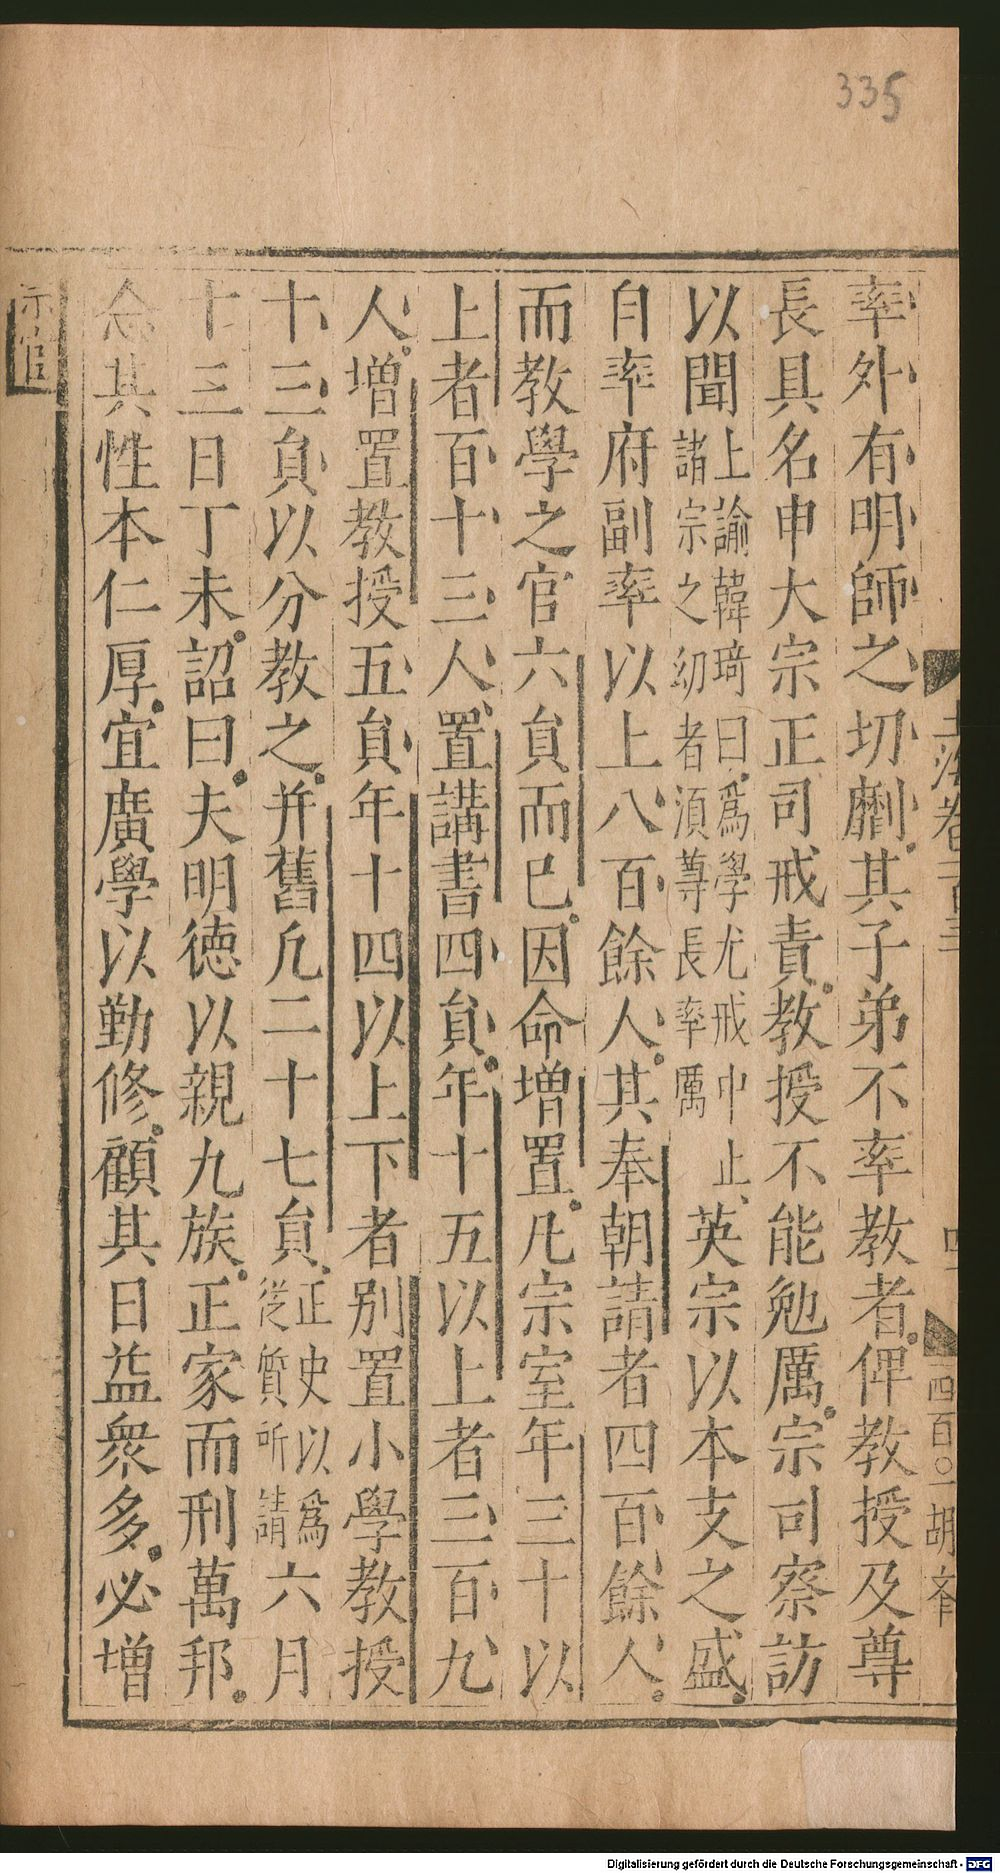 335
率外有明師之切劘其子弟不率教者俾教授及尊
長具名申大宗正司戒責教授不能勉厲宗司察訪
以聞上諭韓琦曰爲學尤戒中止諸宗之幼者須尊長率厲英宗以本支之盛
自率府副率以上八百餘人其奉朝請者四百餘人
而教學之官六貟而已因命增置凡宗室年三十以
上者百十三人置講書四貟年十五以上者三百九
人增置教授五貟年十四以上下者別置小學教授
十三貟以分教之并舊凢二十七貟正史以爲從質所請六月
十三日丁未詔曰夫明德以親九族正家而刑萬邦
念其性本仁厚宜廣學以勤修顧其日益衆多必增
宗官
四百〇一胡
Digitalisierung gefördert durch die Deutsche Forschungsgemeinschaft - DFG